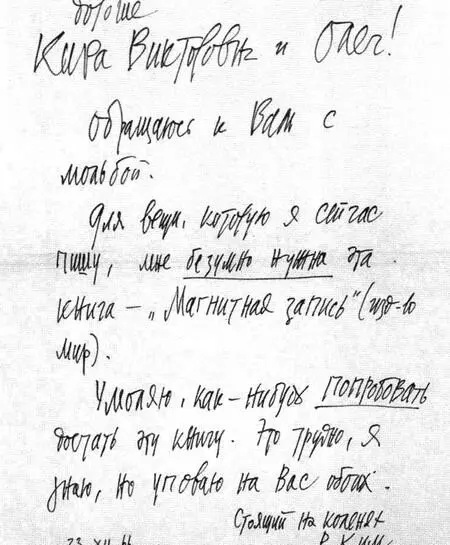 дорогие
Кира Викторовна и Олег!
обращаюсь к Вам с
мольбой.
Для вещи, которую я сейчас
пишу, мне безумно нужна эта
книга – „Магнитная запись" (изд-во
Мир).
Умоляю, как-нибудь попробовать
достать эту книгу. Это трудно, я
знаю, но уповаю на Вас обоих.
Стоящий на коленях
23 XII 66 Р. Ким